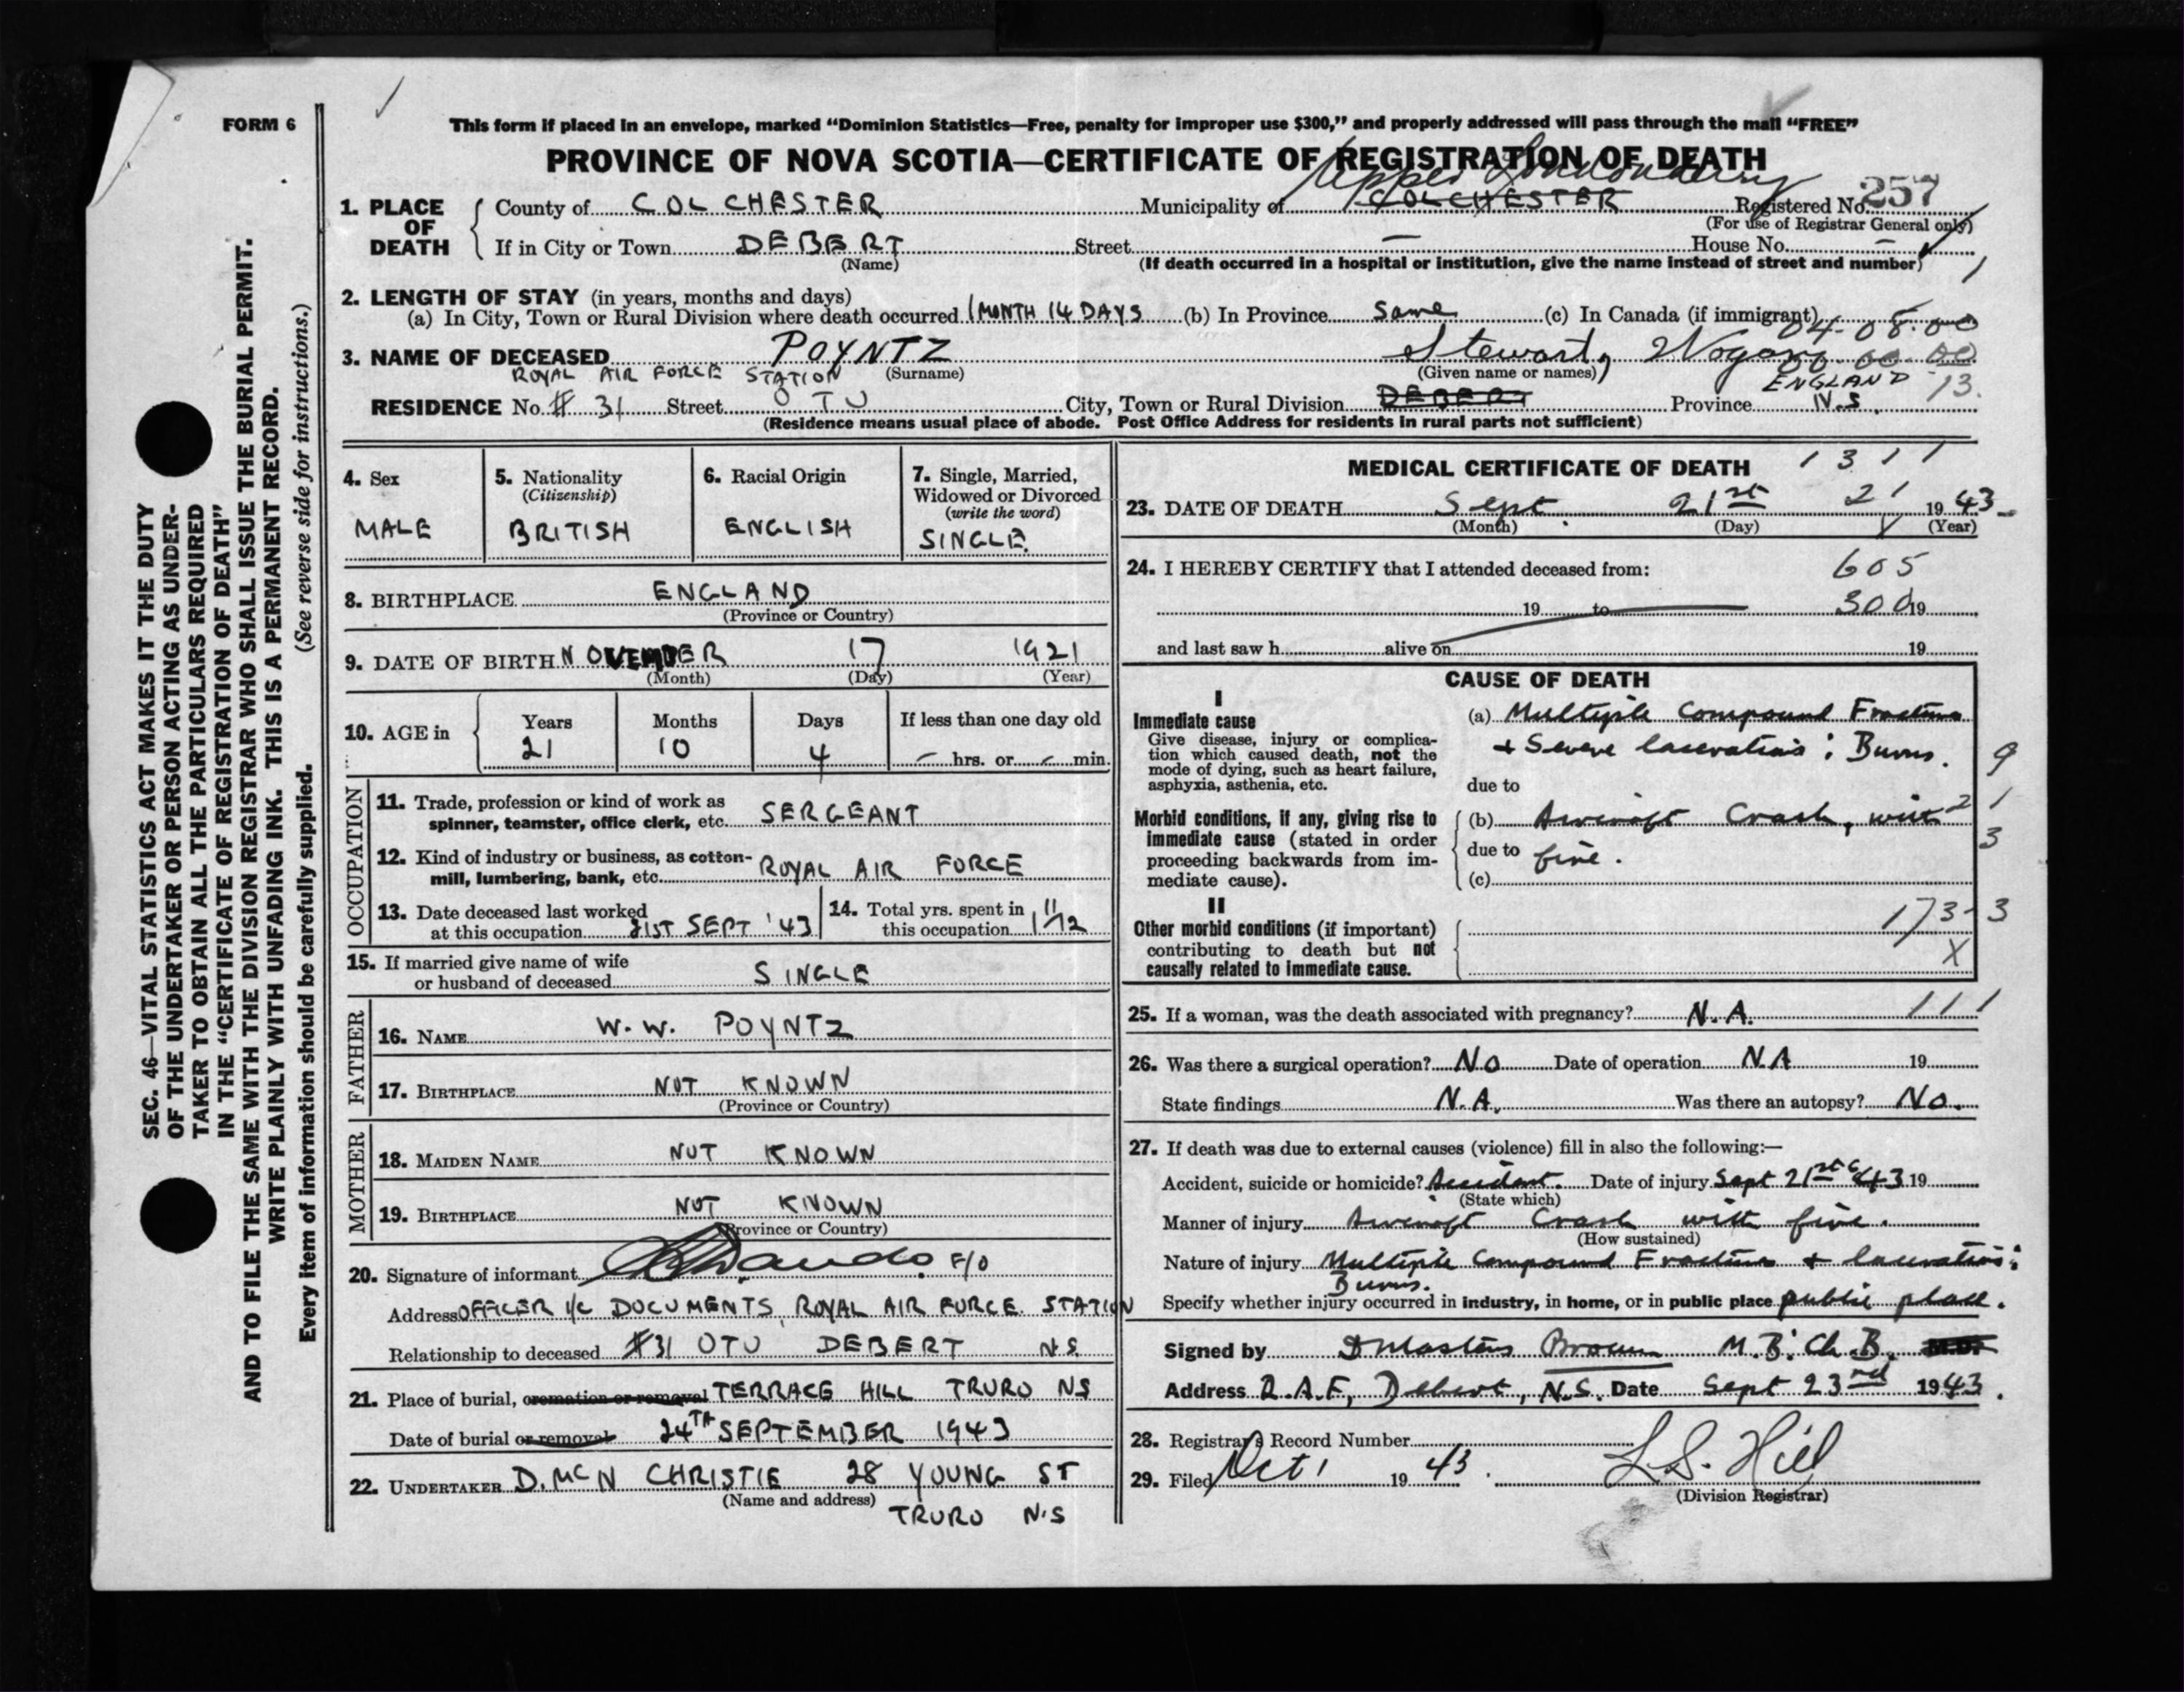 FORM 6
This form if placed in an envelope, marked "Dominion Statistics—Free, penalty for improper use $300," and properly addressed will pass through the mail "FREE"
PROVINCE OF NOVA SCOTIA—CERTIFICATE OF REGISTRATION OF DEATH
Upper Londonderry
1. PLACE OF DEATH County of COLCHESTER Municipality of COLCHESTER Registered No. 257
(For use of Registrar General only)
If in City or Town DEBERT Street — House No. —
(Name) (If death occurred in a hospital or institution, give the name instead of street and number)
2. LENGTH OF STAY (in years, months and days)
(a) In City, Town or Rural Division where death occurred 1 MONTH 14 DAYS (b) In Province Same (c) In Canada (if immigrant)
04-08-00
3. NAME OF DECEASED POYNTZ Stewart,
(Surname) (Given name or names)
00-00-00
ROYAL AIR FORCE STATION ENGLAND 13.
RESIDENCE No. # 31 Street OTU City, Town or Rural Division DEBERT Province N.S.
(Residence means usual place of abode. Post Office Address for residents in rural parts not sufficient)
4. Sex
MALE
5. Nationality
(Citizenship)
BRITISH
6. Racial Origin
ENGLISH
7. Single, Married,
Widowed or Divorced
(write the word)
SINGLE.
8. BIRTHPLACE ENGLAND
(Province or Country)
9. DATE OF BIRTH NOVEMBER 17 1921
(Month) (Day) (Year)
10. AGE in Years Months Days If less than one day old
21 10 4 — hrs. or — min.
OCCUPATION
11. Trade, profession or kind of work as
spinner, teamster, office clerk, etc. SERGEANT
12. Kind of industry or business, as cotton-
mill, lumbering, bank, etc. ROYAL AIR FORCE
13. Date deceased last worked
at this occupation 21ST SEPT '43
14. Total yrs. spent in
this occupation 1 11/12
15. If married give name of wife
or husband of deceased SINGLE
FATHER
16. NAME W. W. POYNTZ
17. BIRTHPLACE NOT KNOWN
(Province or Country)
MOTHER
18. MAIDEN NAME NOT KNOWN
19. BIRTHPLACE NOT KNOWN
(Province or Country)
20. Signature of informant F/O
Address OFFICER i/c DOCUMENTS, ROYAL AIR FORCE STATION
Relationship to deceased #31 OTU DEBERT N.S
21. Place of burial, cremation or removal TERRACE HILL TRURO NS
Date of burial or removal 24TH SEPTEMBER 1943
22. UNDERTAKER D. McN CHRISTIE 28 YOUNG ST
(Name and address) TRURO N.S
MEDICAL CERTIFICATE OF DEATH 1311
23. DATE OF DEATH Sept. 21st 21 1943
(Month) (Day) X (Year)
24. I HEREBY CERTIFY that I attended deceased from: 605
19 to 300 19
and last saw h alive on 19
CAUSE OF DEATH
I
Immediate cause
Give disease, injury or complica-
tion which caused death, not the
mode of dying, such as heart failure,
asphyxia, asthenia, etc.
(a) Multiple Compound Fractures
+ Severe lacerations; Burns. 9
due to
Morbid conditions, if any, giving rise to
immediate cause (stated in order
proceeding backwards from im-
mediate cause).
(b) Aircraft Crash, with 2 1
due to fire. 3
(c)
II
Other morbid conditions (if important)
contributing to death but not
causally related to immediate cause.
173-3
X
25. If a woman, was the death associated with pregnancy? N.A. 111
26. Was there a surgical operation? No Date of operation N.A 19
State findings N.A. Was there an autopsy? No.
27. If death was due to external causes (violence) fill in also the following:—
Accident, suicide or homicide? Accident. Date of injury Sept 21st '43 19
(State which)
Manner of injury Aircraft Crash with fire.
(How sustained)
Nature of injury Multiple Compound Fractures + lacerations;
Burns.
Specify whether injury occurred in industry, in home, or in public place public place.
Signed by D Masters Brown M.B. Ch.B. M.D.
Address R.A.F, Debert, N.S. Date Sept 23rd 1943.
28. Registrar's Record Number
29. Filed Oct 1 1943. L.S. Hill
(Division Registrar)
SEC. 46—VITAL STATISTICS ACT MAKES IT THE DUTY
OF THE UNDERTAKER OR PERSON ACTING AS UNDER-
TAKER TO OBTAIN ALL THE PARTICULARS REQUIRED
IN THE "CERTIFICATE OF REGISTRATION OF DEATH"
AND TO FILE THE SAME WITH THE DIVISION REGISTRAR WHO SHALL ISSUE THE BURIAL PERMIT.
WRITE PLAINLY WITH UNFADING INK. THIS IS A PERMANENT RECORD.
Every item of information should be carefully supplied. (See reverse side for instructions.)